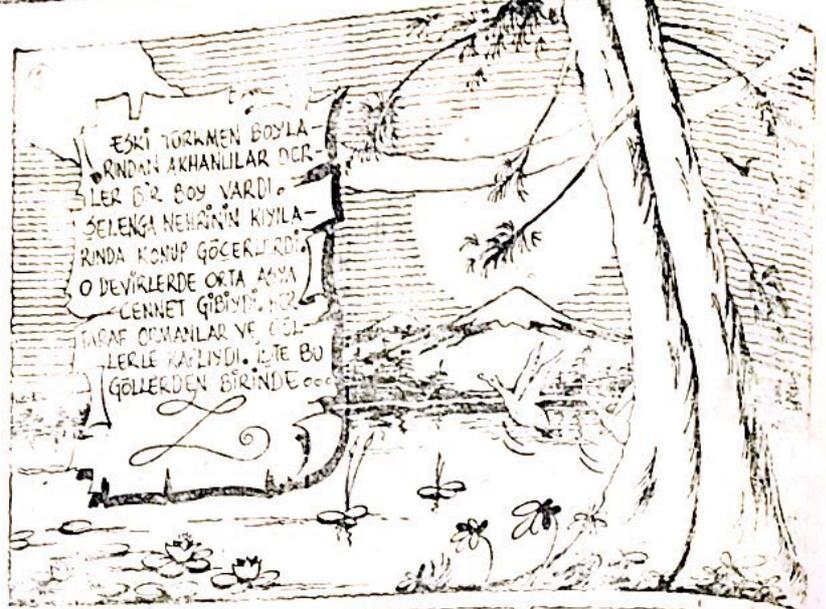 ESKİ TÜRKMEN BOYLA-
RINDAN AKHANLILAR DER-
LER BİR BOY VARDI.
SELENGA NEHRİNİN KIYILA-
RINDA KONUP GÖÇERLERDİ.
O DEVİRLERDE ORTA ASYA
CENNET GİBİYDİ. HER
TARAF ORMANLAR VE GÖL-
LERLE KAPLIYDI. İŞTE BU
GÖLLERDEN BİRİNDE...